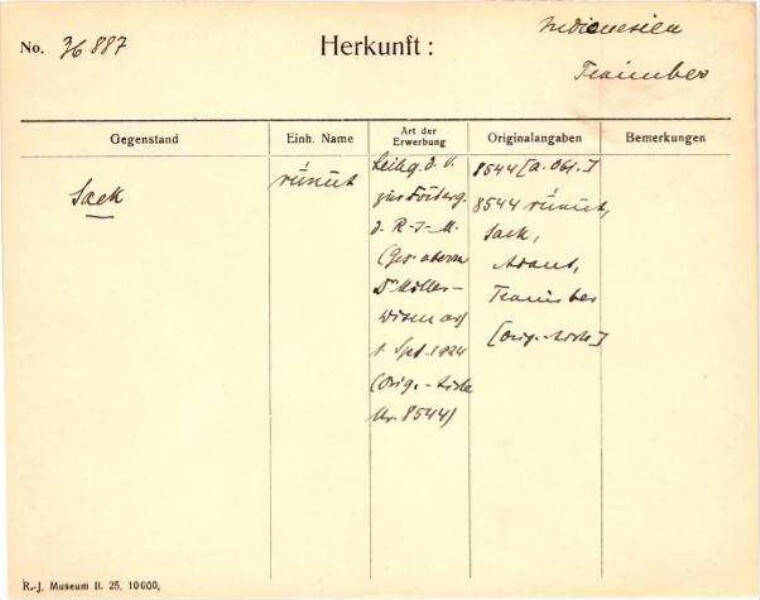 No. 36887
Herkunft:
Indonesien
Tanimber
Gegenstand
Einh. Name
Art der Erwerbung
Originalangaben
Bemerkungen
Sack
rúnut
Leihg. d. V.
zur Förderg.
d. R-J-M.
(Ges.
Dr Müller-
Wismar)
1 Spt.
(Orig.-Liste
Nr. 8544)
8544 [a. Obj.]
8544 rúnut,
Sack,
Adaut,
Tanimber
[Orig.-Liste]
R.-J. Museum II. 25. 10000.